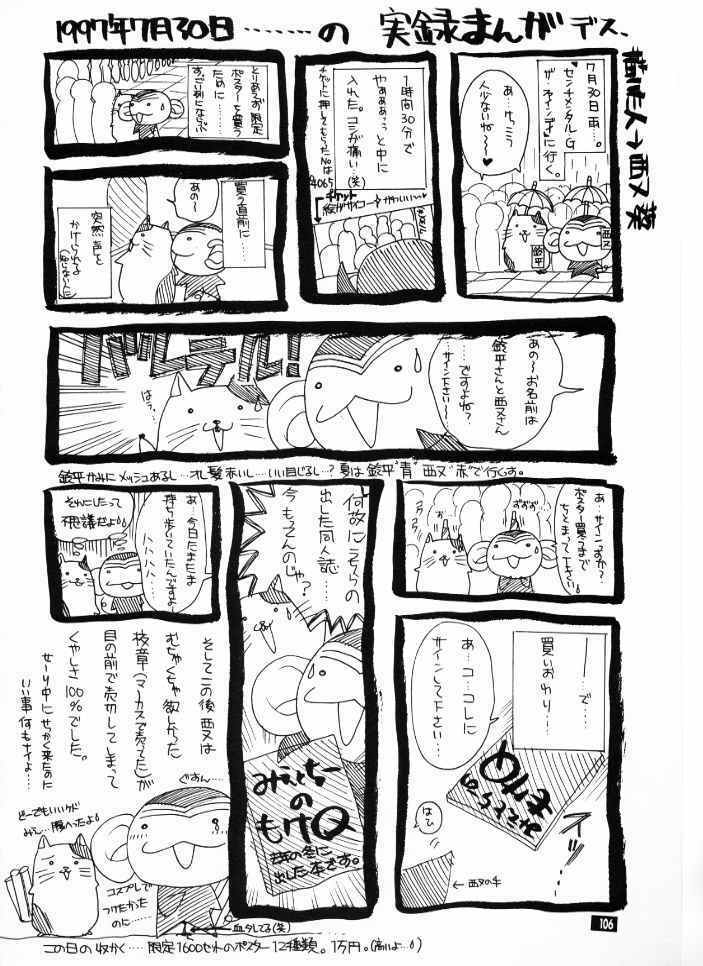 1997年7月30日………の 実録まんがデス、
描いた人→西又葵
7月30日雨…。
センチメンタルG
が・ネインディに
行く。
あ…けっこう
人少ないね〜♥
鈴平
西又
1時間30分で
やぁぁぁっっと中に
入れた。コシが痛い…(笑)
チケットに押してもらったNoは
4065
チケット
絵がサイコーかわいい〜
とりあえず限定
ポスターを買う
ために……
すっごい列にならぶ
買う直前に…
あの〜
突然声を
かけられる
知らない人に
あの〜お名前は
鈴平さんと西又さん
……ですよね?
サイン下さい〜
バレテル!
はぅ…
鈴平かみにメッシュあるし…オレ髪赤いし…いい目じるし…?夏は鈴平"青"西又"赤"で行くっす。
あ…サインっすか?
ポスター買うまで
ちとまって下さい
ずずず…
――で…
買いおわり…
あ…コ…コレに
サインして下さい…
みぇっちーの
もけQ
スッ…
はひ
←西又の手
何故にうちらの
出した同人誌……
今もってんのじゃ?
みぇっちー
の
もけQ
去年の冬に
出した本です。
あ…今日たまたま
持ち歩いていたんですよー
ハハハハ…
それにしたって
不思議だよ
そしてこの後西又は
むちゃくちゃ欲しかった
校章(マーカスで売ってた)が
目の前で売切してしまって
くやしさ100%でした。
せーり中にせっかく来たのに
いい事何もナイよ…
ぐすん…
どーでもいいケド
みぅ…腹へったよ
コスプレで
つけたかった
のに……
←血タレてる(笑)
この日の収かく……限定1600セットのポスター12種類。1万円。(高いよ…)
106